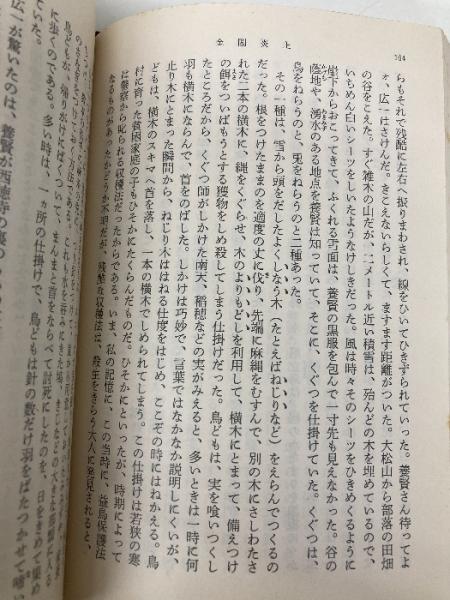 金閣炎上
344
らもそれで残酷に左右へ振りまわされ、線をひいてひきずられていった。養賢さん待ってよ
ォ、広一はさけんだ。きこえないらしくて、ますます距離がちぢいた。大松山から部落の田畑
の谷をこえた。すぐ雑木の山だが、二メートル近い積雪は、殆んどの木を埋めているので、
いちめん白いシーツをしいたようなけしきだった。風は時々そのシーツをひきめくるように
崖下からおこってきて、ふくれる雪面は、養賢の黒服を包んで一寸先も見えなかった。谷の
蔭地や、湧水のある地点を養賢は知っていて、そこに、くぐつを仕掛けていた。くぐつは、
鳥をねらうのと、兎をねらうのと二種あった。
その一種は、雪から頭をだしたよくしなう木（たとえばねじりなど）をえらんでつくるの
だった。根をつけたままのを適度の丈に伐り、先端に麻縄をむすんで、別の木にさしわたさ
れた二本の横木に、縄をくぐらせ、木のよりもどしを利用して、横木にとまって、備えつけ
の餌をついばもうとする獲物をしめ殺してしまう仕掛けだった。鳥どもは、実を喰いつくし
たところだから、くぐつ師がしかけた南天、稲穂などの実がみえると、多いときは一時に何
羽も横木にならんで、首をのばした。しかけは巧妙で、言葉ではなかなか説明しにくいが、
止り木にとまった瞬間から、ねじり木ははねる仕度をはじめ、ここぞの時にはねかえる。鳥
どもは、横木のスキマへ首を落し、一本の横木でしめられてしまう。この仕掛けは若狭の寒
村に育った貧困家庭の子もひそかにたくらんだものだ。ひそかにといったが、時期によって
は警察から叱られる収穫法だったからである。いま、私の記憶に、この当時に、益鳥保護法
なるものがあったかどうか不明だが、残酷な収穫法は、殺生をきらう大人に発見されると、
に歩くのである。多い時は、一ヵ所の仕掛けで、鳥どもは針の数だけ羽をばたつかせて喰い
ていた。
広一が驚いたのは、養賢が西徳寺の裏の